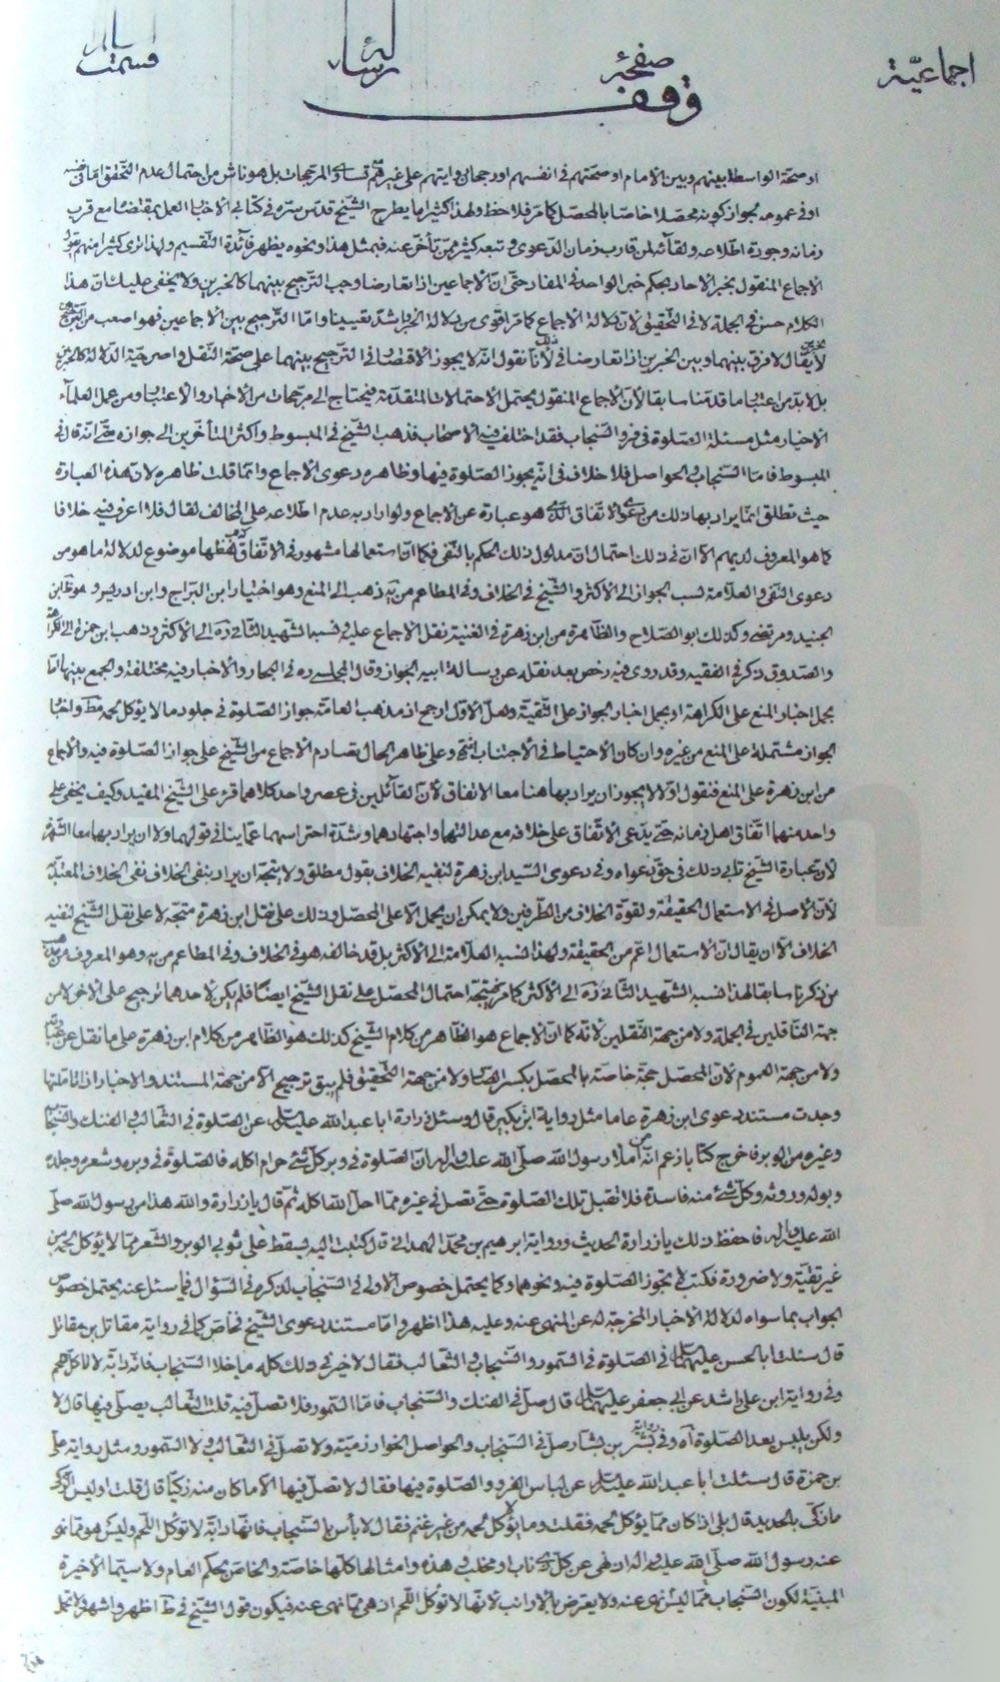 اجماعيّة صفحهٔ رسالهٔ قسمت
وقف
او صحّة الواسطة بينهم وبين الامام او صحّتهم فى انفسهم اور جحان روايتهم على غيرهم والمرجحات بل هو ناش من احتمال عدم التّحقق امّا فى نفسه
او فى عمومه لجواز كونه محصّلا خاصّا بالمحصّل كما مرّ فلا حظ ولهذا كثيرا ما يطرح الشّيخ قدّس سرّه فى كتابى الاخبار العمل بمقتضاه مع قرب
زمانه وجودة اطّلاعه ولقائه لمن قارب زمان الدّعوى وتبعه كثير ممّن تأخّر عنه فبمثل هذا ونحوه يظهر فائدة التّقسيم ولهذا ترى كثيرا منهم يقول
الاجماع المنقول بخبر الاحاد بحكم خبر الواحد فى المفاد حتّى انّ الاجماعين اذا تعارضا وجب التّرجيح بينهما كالخبرين ولا يخفى عليك انّ هذا
الكلام حسن فى الجملة لا فى التّحقيق لانّ دلالة الاجماع كما مرّ اقوى من دلالة الخبر اشدّ تعيينا وامّا التّرجيح بين الاجماعين فهو اصعب من التّرجيح
لا يقال لا فرق بينهما وبين الخبرين اذا تعارضا فى ذلك لانّا نقول انّه لا يجوز الاقتصار فى التّرجيح بينهما على صحّة النّقل واصرحيّة الدّلالة كالخبرين
بل لا بدّ من اعتبار ما قدّمنا سابقا لانّ الاجماع المنقول يحتمل الاحتمالات المتقدّمة فيحتاج الى مرجحات من الاخبار والاعتبار ومن عمل العلمآء
الاخيار مثل مسئلة الصّلوة فى فرو السّنجاب فقد اختلف فيه الاصحاب فذهب الشّيخ فى المبسوط واكثر المتأخّرين الى جوازه حتّى انّه قال فى
المبسوط فامّا السّنجاب والحواصل فلا خلاف فى انّه يجوز الصّلوة فيها وظاهره دعوى الاجماع وانّما قلت ظاهره لانّ هذه العبارة
حيث تطلق انّما يراد بها ذلك من دعوى الاتّفاق الّذى هو عبارة عن الاجماع ولو اراد به عدم اطّلاعه على المخالف لقال فلا اعرف فيه خلافا
كما هو المعروف لديهم الّا انّ فى ذلك احتمال انّ مدلول ذلك الحكم بالنّفى فكما انّ استعمالها مشهور فى الاتّفاق لفظها موضوع لدلالة ما هو من
دعوى النّفى والعلّامة نسب الجواز الى الاكثر والشّيخ فى الخلاف وفى المطاعم من يه ذهب الى المنع وهو اختيار ابن البرّاج وابن ادريس و هو ظ ابن
الجنيد ومرتضى وكذلك ابو الصّلاح والظّاهرة من ابن زهرة فى الغنية نقل الاجماع عليه ونسبها الشّهيد الثّانى ره الى الاكثر وذهب ابن حمزة الى الكراهة
والصّدوق ذكر فى الفقيه وقد روى فيه رخص بعد نقله عن رسالة ابيه الجواز وقال المجلسى ره فى البحار والاخبار فيه مختلفة والجمع بينها امّا
بحمل اخبار المنع على الكراهة او بحمل اخبار الجواز على التّقيّة ولعلّ الاوّل ارجح اذ مذهب العامّة جواز الصّلوة فى جلود ما لا يؤكل لحمه مط واخبار
الجواز مشتملة على المنع من غيره وان كان الاحتياط فى الاجتناب انتهى وعلى ظاهر الحال يصادم الاجماع من الشّيخ على جواز الصّلوة فيه والاجماع
من ابن زهرة على المنع فنقول اوّلا لا يجوز ان يراد بها هنا معا الاتفاق لانّ القآئلين فى عصر واحد كلاهما قرء على الشّيخ المفيد وكيف يخفى على
واحد منهما اتّفاق اهل زمانه حتّى يدّعى الاتّفاق على خلافه مع عدالتهما واجتهادهما وشدّة احتراسهما عمّا ينافى قولهما ولا ان يراد بها معا الشّهرة
لانّ عبارة الشّيخ تابى ذلك فى حقّ دعواه وفى دعوى السّيد ابن زهرة لنفيه الخلاف بقول مطلق ولا يتّجه ان يراد بنفى الخلاف نفى الخلاف المعتدّ به
لانّ الاصل فى الاستعمال الحقيقة ولقوّة الخلاف من الطّرفين ولا يمكن ان يحمل الّا على المحصّل وذلك على نقل ابن زهرة متّجه لا على نقل الشّيخ لنفيه
الخلاف الّا ان يقال انّ الاستعمال اعمّ من الحقيقة ولهذا نسبه العلّامة الى الاكثر بل قد خالفه هو فى الخلاف وفى المطاعم من يه وهو المعروف من مذهب
من ذكرنا سابقا لهذا نسبه الشّهيد الثّانى ره الى الاكثر كما مرّ فيتّجه احتمال المحصّل على نقل الشّيخ ايضا فلم يكن لاحدهما ترجيح على الاخر لا من
جهة النّاقلين فى الجملة ولا من جهة النّقلين لانّه كما انّ الاجماع هو الظّاهر من كلام الشّيخ كذلك هو الظّاهر من كلام ابن زهرة على ما نقل عن
ولا من جهة العموم لانّ المحصّل حجّة خاصّة بالمحصّل بكسر الصّاد ولا من جهة التّحقيق فلم يبق ترجيح الّا من جهة المستند والاخبار اذا تاملتها
وجدت مستند دعوى ابن زهرة عاما مثل رواية ابن بكير قال وسئل زرارة ابا عبد الله عليه السلام عن الصّلوة فى الثّعالب والفنك والسّنجاب
وغيره من الوبر فاخرج كتابا زعم انّه املاء رسول الله صلّى الله عليه واله انّ الصّلوة فى وبر كلّ شئ حرام اكله فالصّلوة فى وبره وشعره وجلده
وبوله وروثه وكلّ شئ منه فاسدة فلا تقبل تلك الصّلوة حتّى تصلّ فى غيره ممّا احلّ الله اكله ثمّ قال يا زرارة والله هذا من رسول الله صلّى
الله عليه واله فاحفظ ذلك يا زرارة الحديث ورواية ابرهيم بن محمّد الهمدانى قال كتبت اليه يسقط على ثوبى الوبر والشّعر ممّا لا يؤكل لحمه من
غير تقيّة ولا ضرورة فكتب لا تجوز الصّلوة فيه ونحوهما وكما يحتمل خصوص الاولى فى السّنجاب لذكره فى السّؤال فيما سئل عنه يحتمل خصوص
الجواب بما سواه لدلالة الاخبار المخرجة له عن المنهى عنه وعليه هذا اظهر وامّا مستند دعوى الشّيخ فخاصّ كما فى رواية مقاتل بن مقاتل
قال سئلت ابا الحسن عليه السلام فى الصّلوة فى السّمّور والسّنجاب والثّعالب فقال لا خير فى ذلك كلّه ما خلا السّنجاب فانّه دابّة لا تاكل اللّحم
وفى رواية ابن على راشد عن ابى جعفر عليه السلام قال صلّ فى الفنك والسّنجاب فامّا السّمّور فلا تصلّ فيه قلت الثّعالب يصلّى فيها قال لا
ولكن يلبس بعد الصّلوة آه وفى رواية بشير بن بشار صلّ فى السّنجاب والحواصل الخوارزميّة ولا تصلّ فى الثّعالب ولا السّمّور ومثل رواية على
بن حمزة قال سئلت ابا عبد الله عليه السلام عن لباس الفرو والصّلوة فيها فقال لا تصلّ فيها الّا ما كان منه زكيّا قال قلت اوليس الزّكى
ما ذكّى بالحديد قال بلى اذا كان ممّا يؤكل لحمه فقلت وما لا يؤكل لحمه من غير غنم فقال لا بأس بالسّنجاب فانّها دابّة لا تؤكل اللّحم وليس هو ممّا نهى
عنه رسول الله صلّى الله عليه واله اذ نهى عن كلّ ذى ناب او مخلب وهذه وامثالها كلّها خاصّة والخاصّ يحكم العام ولا سيّما الاخيرة
المبنيّة لكون السّنجاب ممّا ليس نهى عنه ولا يعرض بالارانب لانّها لا تؤكل اللّحم اذ هى ممّا نهى عنه فيكون قول الشّيخ فى ط اظهر واشهر ولا تحمل